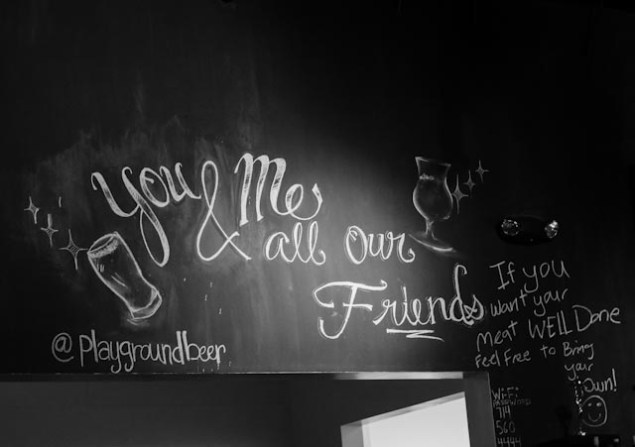 You & Me
all our
Friends
@playgroundbeer
If you
want your
Meat WELL Done
Feel Free to Bring
your
own!
WiFi
714
560
4444